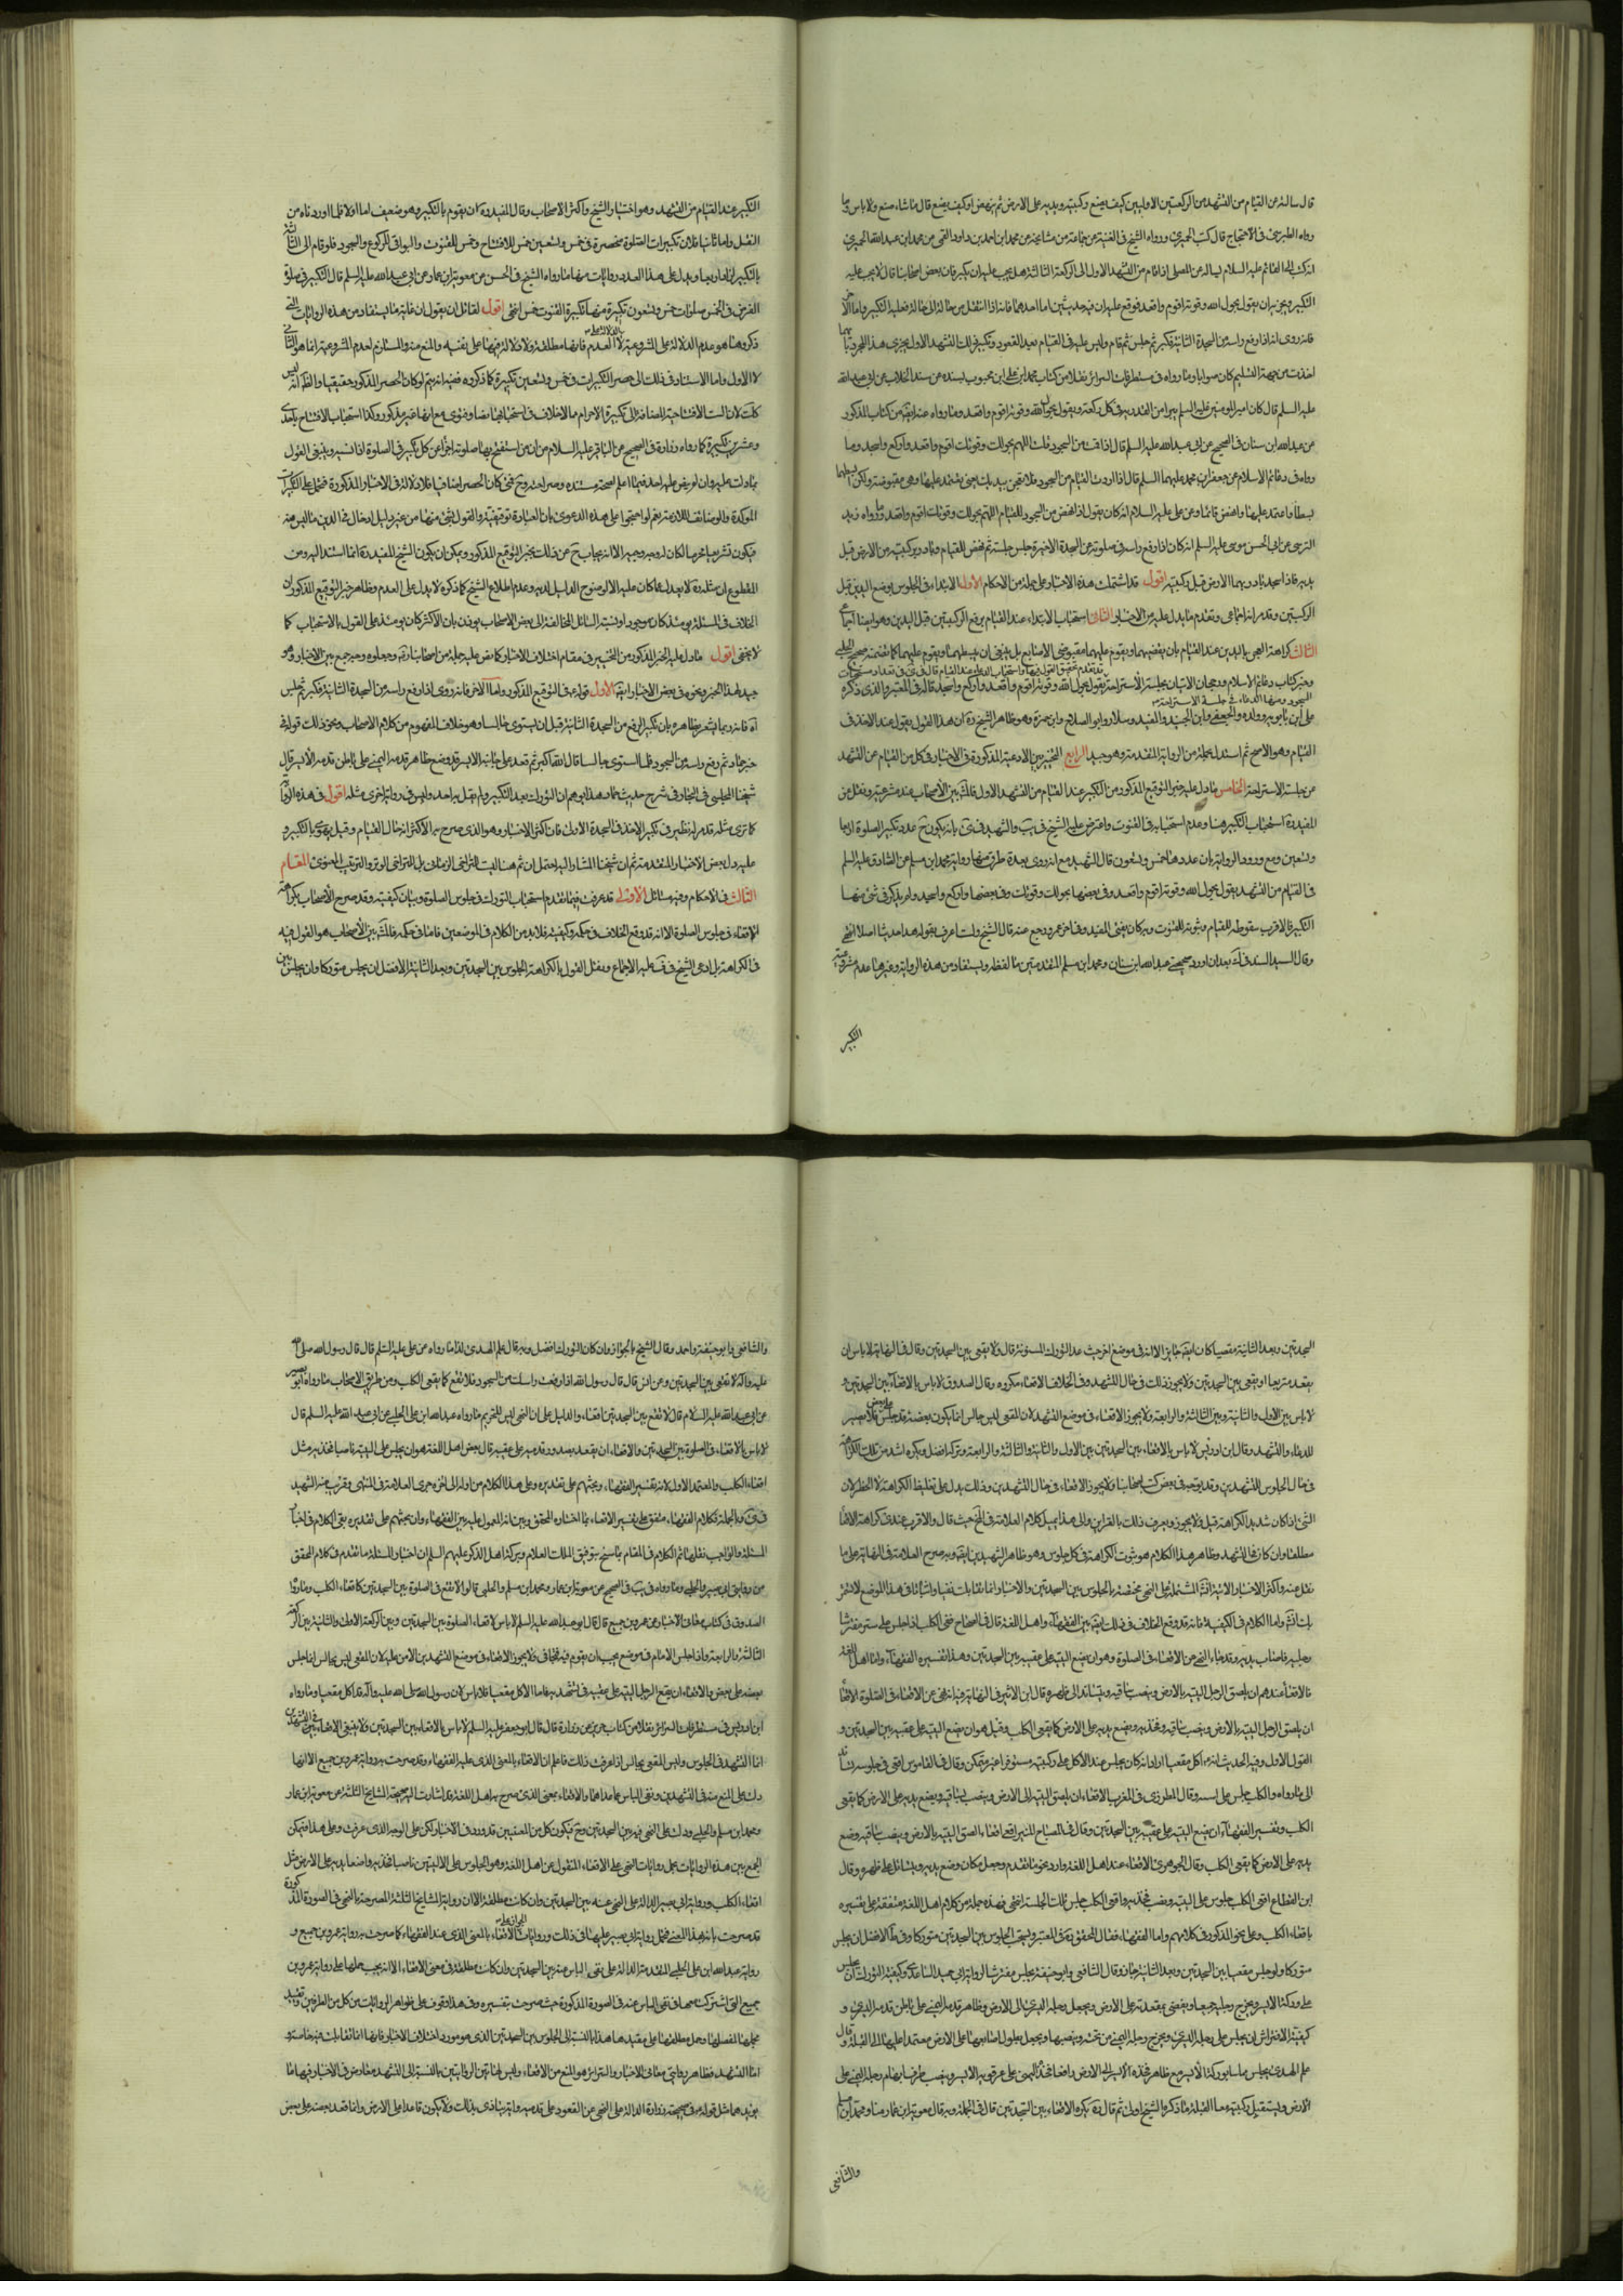 قال سالته عن القيام من التشهد من الركعتين الاوليين كيف يضع ركبتيه ويديه على الارض ثم ينهض او كيف يصنع قال ما شاء صنع ولا باس وما
رواه الطبرسي في الاحتجاج قال كتب الحميري ورواه الشيخ في الغيبة عن جماعة من مشايخه عن محمد ابن احمد بن داود القمي عن محمد ابن عبد الله الحميري
انه كتب الى القائم عليه السلام يساله عن المصلي اذا قام من التشهد الاول الى الركعة الثالثة هل يجب عليه ان يكبر فان بعض اصحابنا قال لا يجب عليه
التكبير ويجزيه ان يقول بحول الله وقوته اقوم واقعد فوقع عليه ان فيه حديثين اما احدهما فانه اذا انتقل من حالة الى حالة فعليه التكبير واما الاخر
فانه روى انه اذا رفع راسه من السجدة الثانية فكبر ثم جلس ثم قام وليس عليه في القيام بعد القعود تكبير وكذلك التشهد الاول يجري هذا المجرى وبايهما
اخذت من جهة التسليم كان صوابا وما رواه في مستطرفات السرائر نقلا من كتاب محمد ابن علي ابن محبوب بسنده عن سعد الجلاب عن ابي عبد الله
عليه السلم قال كان امير المومنين عليه السلم يبرأ من القدرية في كل ركعة ويقول بحول الله وقوته اقوم واقعد وما رواه عنه ايضا من كتاب المذكور
عن عبد الله ابن سنان في الصحيح عن ابي عبد الله عليه السلم قال اذا قمت من السجود قلت اللهم بحولك وقوتك اقوم واقعد واركع واسجد وما
رواه في دعائم الاسلام عن جعفر ابن محمد عليهما السلم قال اذا اردت القيام من السجود فلا تعجن بيديك يعني تعتمد عليهما وهي مقبوضة ولكن ابسطهما
بسطا واعتمد عليهما وانهض قائما وعن علي عليه السلام انه كان يقول اذا نهض من السجود للقيام اللهم بحولك وقوتك اقوم واقعد وما رواه زيد
النرسي عن ابي الحسن موسى عليه السلم انه كان اذا رفع راسه في صلوته من السجدة الاخيرة جلس جلسة ثم نهض للقيام وبادر بركبتيه من الارض قبل
يديه فاذا سجد بادر بهما الارض قبل ركبتيه اقول قد اشتملت هذه الاخبار على جملة من الاحكام الاول الابتداء في الجلوس بوضع اليدين قبل
الركبتين وقد مر انه اجماعي وتقدم ما يدل عليه من الاخبار الثاني استحباب الابتداء عند القيام برفع الركبتين قبل اليدين وهو ايضا اجماعي
الثالث كراهة العجن باليدين عند القيام بان يقبضهما ويقوم عليهما مقبوضتي الاصابع بل ينبغي ان يبسطهما ويقوم عليهما كما تضمنه صحيح الحلبي
وخبر كتاب دعائم الاسلام ورجحان الاتيان بجلسة الاستراحة يقول بحول الله وقوته اقوم واقعد واركع واسجد قاله في المعتبر والذي ذكره
علي ابن بابويه وولده والجعفي وابن الجنيد والمفيد وسلار وابو الصلاح وابن حمزة وهو ظاهر الشيخ ره ان هذا القول يقوله عند الاخذ في
القيام وهو الاصح ثم استدل بجملة من الرواية المتقدمة وهو جيد الرابع التخيير بين الادعية المذكورة في الاخبار في كل من القيام عن التشهد
عن جلسة الاستراحة الخامس ما دل عليه خبر التوقيع المذكور من التكبير عند القيام من التشهد الاول فالمشهور بين الاصحاب عدم شرعيته ونقل عن
المفيد ره استحباب التكبير هنا وعدم استحبابه في القنوت واعترض عليه الشيخ في يب والشهيد في كرى بانه يكون ح عدد تكبير الصلوة اربعا
وتسعين ومع ورود الرواية بان عددها خمس وتسعون قال الشهيد مع انه روي بعدة طرق منها رواية محمد ابن مسلم عن الصادق عليه السلم
في القيام من التشهد يقول بحول الله وقوته اقوم واقعد وفي بعضها بحولك وقوتك وفي بعضها واركع واسجد ولم يذكر في شئ منها
التكبير فالاقرب سقوطه للقيام وثبوته للقنوت وبه كان يفتي المفيد وفي اخر عمره رجع عنه قال الشيخ ولست اعرف بقوله هذا حديثا اصلا انتهى
وقال السيد السند في ك بعد ان اورد صحيحتي عبد الله ابن سنان ومحمد ابن مسلم المتقدمتين ما لفظه ويستفاد من هذه الرواية وغيرها عدم مشروعية
التكبير
التكبير عند القيام من التشهد وهو اختيار الشيخ واكثر الاصحاب وقال المفيد ره ان يقوم بالتكبير وهو ضعيف اما اولا فلما اوردناه من
النقل واما ثانيا فلان تكبيرات الصلوة منحصرة في خمس وتسعين خمس للافتتاح وخمس للقنوت والبواقي للركوع والسجود فلو قام الى الثالثة
بالتكبير لزاد اربعا ويدل على هذا العدد روايات منها ما رواه الشيخ في الحسن عن معوية ابن عمار عن ابي عبد الله عليه السلم قال التكبير في صلوة
الفرض في الخمس صلوات خمس وتسعون تكبيرة منها تكبيرة القنوت خمس انتهى اقول لقائل ان يقول ان غاية ما يستفاد من هذه الروايات التي
ذكروها هو عدم الدلالة على الشرعية لا الدلالة على العدم فانها مطلقة ولا دلالة فيها على نفيه والمنع منه والمستلزم لعدم المشروعية انما هو الثاني
لا الاول واما الاستناد في ذلك الى حصر التكبيرات في خمس وتسعين تكبيرة كما ذكروه ففيه انه يتم لو كان الحصر المذكور حقيقيا والظاهر انه ليس
كذلك لان الست الافتتاحية المضافة الى تكبيرة الاحرام مما لا خلاف في استحبابها نصا وفتوى مع انها غير مذكور وكذا استحباب الافتتاح باحدى
وعشرين تكبيرة كما رواه زرارة في الصحيح عن الباقر عليه السلام من ان من استفتح بها صلوته اجزأه عن كل تكبير في الصلوة اذا نسيه وينبغي القول
بما دلت عليه وان لم يفت عليه احد فيما اعلم لصحة مستنده وصراحته وح فمتى كان الحصر اضافيا فلا دلالة في الاخبار المذكورة فتحمل على التكبيرات
الموكدة والوضائف اللازمة نعم لو احتجوا على هذه الدعوى بان العبادة توقيفية والقول بشئ منها من غير دليل ادخال في الدين ما ليس منه
فيكون تشريعا محرما لكان له وجه وجيه الا انه يجاب ح عن ذلك بخبر التوقيع المذكور ويمكن ان يكون الشيخ المفيد ره انما استند اليه ومن
المقطوع ان مثله ره لا يعدل عما كان عليه الا لوضوح الدليل لديه وعدم اطلاع الشيخ كما ذكره لا يدل على العدم وظاهر خبر التوقيع المذكور ان
الخلاف في المسئلة يومئذ كان موجودا ونسبة السائل المخالفة الى بعض الاصحاب يوذن بان الاكثر كان يومئذ على القول بالاستحباب كما
لا يخفى اقول ما دل عليه الخبر المذكور من التخيير في مقام اختلاف الاخبار كما نص عليه جملة من اصحابنا رضي وجعلوه وجه جمع بين الاخبار وهو
جيد لهذا الخبر ونحوه في بعض الاخبار ايضا الاول قوله في التوقيع المذكور واما الاخر فانه روى اذا رفع راسه من السجدة الثانية فكبر ثم جلس
اه فانه ربما اشعر بظاهره بان تكبير الرفع من السجدة الثانية قبل ان يستوي جالسا وهو خلاف المفهوم من كلام الاصحاب ونحو ذلك قوله في
خبر حماد ثم رفع راسه من السجود فلما استوى جالسا قال الله اكبر ثم قعد على جانبه الايسر قد وضع ظاهر قدمه اليمنى على باطن قدمه الايسر قال
شيخنا المجلسي في البحار في شرح حديث حماد هذا يوهم ان التورك بعد التكبير ولم يقل به احد وليس في رواية اخرى مثله اقول في هذه الرواية
كما ترى مثله قد مر له نظير في تكبير الاخذ في السجدة الاولى فان اكثر الاخبار وهو الذي صرح به الاكثر انه حال القيام وقبل يهوي بالتكبير و
عليه دل بعض الاخبار المتقدمة ثم ان شيخنا المشار اليه احتمل ان ثم هنا ليست للتراخي الزماني بل للتراخي الرتبي والترتيب المعنوي المقام
الثالث في الاحكام وفيه مسائل الاولى قد عرفت فيما تقدم استحباب التورك في جلوس الصلوة وبيان كيفيته وقد صرح الاصحاب بكراهة
الاقعاء في جلوس الصلوة الا انه قد وقع الخلاف في حكمه وكيفيته فلا بد من الكلام في الموضعين فاما في حكمه فالمشهور بين الاصحاب هو القول فيه
في الكراهة بل ادعى الشيخ في ف عليه الاجماع ونقل القول بالكراهة الجلوس بين السجدتين وبعد الثانية الافضل ان يجلس متوركا وان يجلس بين
السجدتين وبعد الثانية مقعيا كان ايضا جايزا الا انه في موضع اخر حيث عد التورك المسنونة قال ولا يقعي بين السجدتين وقال في النهاية لا باس ان
يقعد متربعا او يقعي بين السجدتين ولا يجوز ذلك في حال التشهد وفي الخلاف الاقعاء مكروه وقال الصدوق لا باس بالاقعاء بين السجدتين و
لا باس بين الاولى والثانية وبين الثالثة والرابعة ولا يجوز الاقعاء في موضع التشهد لان المقعي ليس جالس انما يكون بعضه قد جلس على بعض فلا يصير
للدعاء والتشهد وقال ابن ادريس لا باس بالاقعاء بين السجدتين من الاولى والثانية والثالثة والرابعة وتركه افضل ويكره اشد من تلك الكراهة
في حال الجلوس للتشهدين وقد يوجد في بعض كتب اصحابنا ولا يجوز الاقعاء في حال التشهدين وذلك يدل على تغليظ الكراهة لا الحظر لان
الشئ اذا كان شديد الكراهة قيل لا يجوز ويعرف ذلك بالقراين والى هذا يميل كلام العلامة في المختلف حيث قال والاقرب عندي كراهة الاقعاء
مطلقا وان كان في التشهد وظاهر هذا الكلام هو ثبوت الكراهة في كل جلوس وهو ظاهر الشهيدين ايضا وبه صرح العلامة في النهاية على ما
نقل عنه واكثر الاخبار الاتية المشتملة على النهي مختصة بالجلوس بين السجدتين والاخبار انما تقابلت نفيا واثباتا في هذا الموضع لا غير
واما الكلام في الكيفية فانه قد وقع الخلاف في ذلك ايضا بين الفقهاء واهل اللغة قال في الصحاح اقعى الكلب اذا جلس على استه مفترشا
رجليه وناصبا يديه وقد جاء النهي عن الاقعاء في الصلوة وهو ان يضع اليتيه على عقبيه بين السجدتين وهذا تفسير الفقهاء واما اهل اللغة
فالاقعاء عندهم ان يلصق الرجل اليتيه بالارض وينصب ساقيه ويتساند الى ظهره قال ابن الاثير في النهاية فيه انه نهى عن الاقعاء في الصلوة الاقعاء
ان يلصق الرجل اليتيه بالارض وينصب ساقيه وفخذيه ويضع يديه على الارض كما يقعي الكلب وقيل هو ان يضع اليتيه على عقبيه بين السجدتين و
القول الاول وفيه الحديث انه ع اكل مقعيا اراد انه كان يجلس عند الاكل على وركيه مستوفزا غير متمكن وقال في القاموس اقعى في جلوسه تساند
الى ما وراه والكلب جلس على استه وقال المطرزي في المغرب الاقعاء ان يلصق اليتيه الى الارض وينصب ساقيه ويضع يديه على الارض كما يقعي
الكلب وتفسير الفقهاء ان يضع اليتيه على عقبيه بين السجدتين وقال في المصباح المنير اقعى اقعاء الصق اليتيه بالارض ونصب ساقيه ووضع
يديه على الارض كما يقعي الكلب وقال الجوهري الاقعاء عند اهل اللغة واورد نحو ما تقدم وجعل مكان وضع يديه ويتساند الى ظهره وقال
ابن القطاع اقعى الكلب جلس على اليتيه ونصب فخذيه واقعى الكلب جلس تلك الجلسة انتهى فهذه جملة من كلام اهل اللغة متفقة على تفسيره
باقعاء الكلب وعلى نحو المذكور في كلامهم واما الفقهاء فقال المحقق ره في المعتبر ويستحب الجلوس بين السجدتين متوركا وفي ط الافضل ان يجلس
متوركا ولو جلس مقعيا بين السجدتين وبعد الثانية جاز وقال الشافعي وابو حنيفة يجلس مفترشا لرواية ابي حميد الساعدي وكيفية التورك ان يجلس
على وركه الايسر ويخرج رجليه جميعا ويفضي بمقعدته على الارض ويجعل رجله اليسرى الى الارض وظاهر قدمه اليمنى على باطن قدمه اليسرى و
كيفية الافتراش ان يجلس على رجله اليسرى ويخرج رجله اليمنى من تحته وينصبها ويجعل بطون اصابعها على الارض معتمدا عليها الى القبلة وقال
علم الهدى يجلس مماسا بوركه الايسر مع ظاهر فخذه الايسر الى الارض رافعا فخذه اليمنى على عرقوبه الايسر وينصب طرف ابهام رجله اليمنى على
الارض ويستقبل بركبتيه معا القبلة وما ذكره الشيخ اولى ثم قال ره يكره الاقعاء بين السجدتين قال في الجملة وبه قال معوية ابن عمار منا ومحمد ابن مسلم
والشافعي
والشافعي وابو حنيفة واحمد وقال الشيخ بالجواز وان كان التورك افضل وبه قال علم الهدى لنا ما رواه عن علي عليه السلم قال قال رسول الله صلى الله
عليه واله لا تقعى بين السجدتين وعن انس قال قال رسول الله اذا رفعت راسك من السجود فلا تقع كما يقعي الكلب ومن طريق الاصحاب ما رواه ابو بصير
عن ابي عبد الله عليه السلام قال لا تقع بين السجدتين اقعاء والدليل على ان النهي ليس للتحريم ما رواه عبد الله ابن علي الحلبي عن ابي عبد الله عليه السلم قال
لا باس بالاقعاء في الصلوة بين السجدتين والاقعاء ان يعتمد بصدور قدميه على عقبيه وقال بعض اهل اللغة هو ان يجلس على اليتيه ناصبا فخذيه مثل
اقعاء الكلب والمعتمد الاول لانه تفسير الفقهاء وبحثهم على تقديره وعلى هذا الكلام من اوله الى اخره جرى العلامة في المنتهى وقرب منه الشهيد
في كرى وبالجملة فكلام الفقهاء متفق على تفسير الاقعاء بما اختاره المحقق وبين انه المعول عليه بين الفقهاء وان بحثهم على تقديره بقي الكلام في اخبار
المسئلة والواجب نقلها ثم الكلام في المقام بما سنح بتوفيق الملك العلام وبركة اهل الذكر عليهم السلم ان اخبار المسئلة ما تقدم في كلام المحقق
من روايتي ابي بصير والحلبي وما رواه في يب في الصحيح عن معوية ابن عمار ومحمد ابن مسلم والحلبي قالوا لا تقع في الصلوة بين السجدتين كاقعاء الكلب وما رواه
الصدوق في كتاب معاني الاخبار عن عمرو بن جميع قال قال ابو عبد الله عليه السلم لا باس بالاقعاء في الصلوة بين السجدتين وبين الركعة الاولى والثانية وبين الركعة
الثالثة والرابعة واذا اجلس الامام في موضع يجب ان يقوم فيه فتجافى ولا يجوز الاقعاء في موضع التشهدين الا من علة لان المقعي ليس بجالس انما جلس
بعضه على بعض والاقعاء ان يضع الرجل اليتيه على عقبيه في تشهديه فاما الاكل مقعيا فلا باس لان رسول الله صلى الله عليه واله قد اكل مقعيا وما رواه
ابن ادريس في مستطرفات السرائر نقلا من كتاب حريز عن زرارة قال قال ابو جعفر عليه السلم لا باس بالاقعاء بين السجدتين ولا ينبغي الاقعاء في التشهدين
انما التشهد في الجلوس وليس المقعي بجالس اذا عرفت ذلك فاعلم ان الاقعاء بالمعنى الذي عليه الفقهاء وقد صرحت به رواية عمرو بن جميع الا انها
دلت على المنع منه في التشهدين ونفي الباس عما عداهما والاقعاء بمعنى الذي صرح به اهل اللغة قد اشارت اليه صحيحة المشايخ الثلثة عن معوية ابن عمار
ومحمد ابن مسلم والحلبي ودلت على النهي فيه بين السجدتين وح فيكون كل من المعنيين قد ورد في الاخبار لكن على الوجه الذي عرفت وعلى هذا فيمكن
الجمع بين هذه الروايات بحمل روايات النهي على الاقعاء المنقول عن اهل اللغة وهو الجلوس على الاليتين ناصبا فخذيه واضعا يديه على الارض مثل
اقعاء الكلب ورواية ابي بصير الدالة على النهي عنه بين السجدتين وان كانت مطلقة الا ان رواية المشايخ الثلثة المصرحة بالنهي في الصورة المذكورة
قد صرحت بانه بهذا المعنى فتحمل رواية ابي بصير عليها في ذلك وروايات الجواز على الاقعاء بالمعنى الذي عند الفقهاء كما صرحت به رواية عمرو بن جميع و
رواية عبد الله ابن علي الحلبي المتقدمة الدالة على نفي الباس عنه بين السجدتين وان كانت مطلقة في معنى الاقعاء الا انه يجب حملها على رواية عمرو بن
جميع التي اشتركت معها في نفي الباس عنه في الصورة المذكورة حيث صرحت بتفسيره وفي هذا وقوف على ظواهر الروايات من كل من الطرفين وتقييد
مجملها لمفصلها وحمل مطلقها على مقيدها هذا بالنسبة الى الجلوس بين السجدتين الذي هو مورد اختلاف الاخبار فانها انما تقابلت فيه خاصة و
اما التشهد فظاهر روايتي معاني الاخبار والسرائر هو المنع من الاقعاء وليس لهاتين الروايتين بالنسبة الى التشهد معارض في الاخبار فيها ما
يويدهما مثل قوله ع في صحيحة زرارة الدالة على النهي عن القعود على قدميه وانه يتاذى بذلك ولا يكون قاعدا على الارض وانما قعد بعضه على بعض